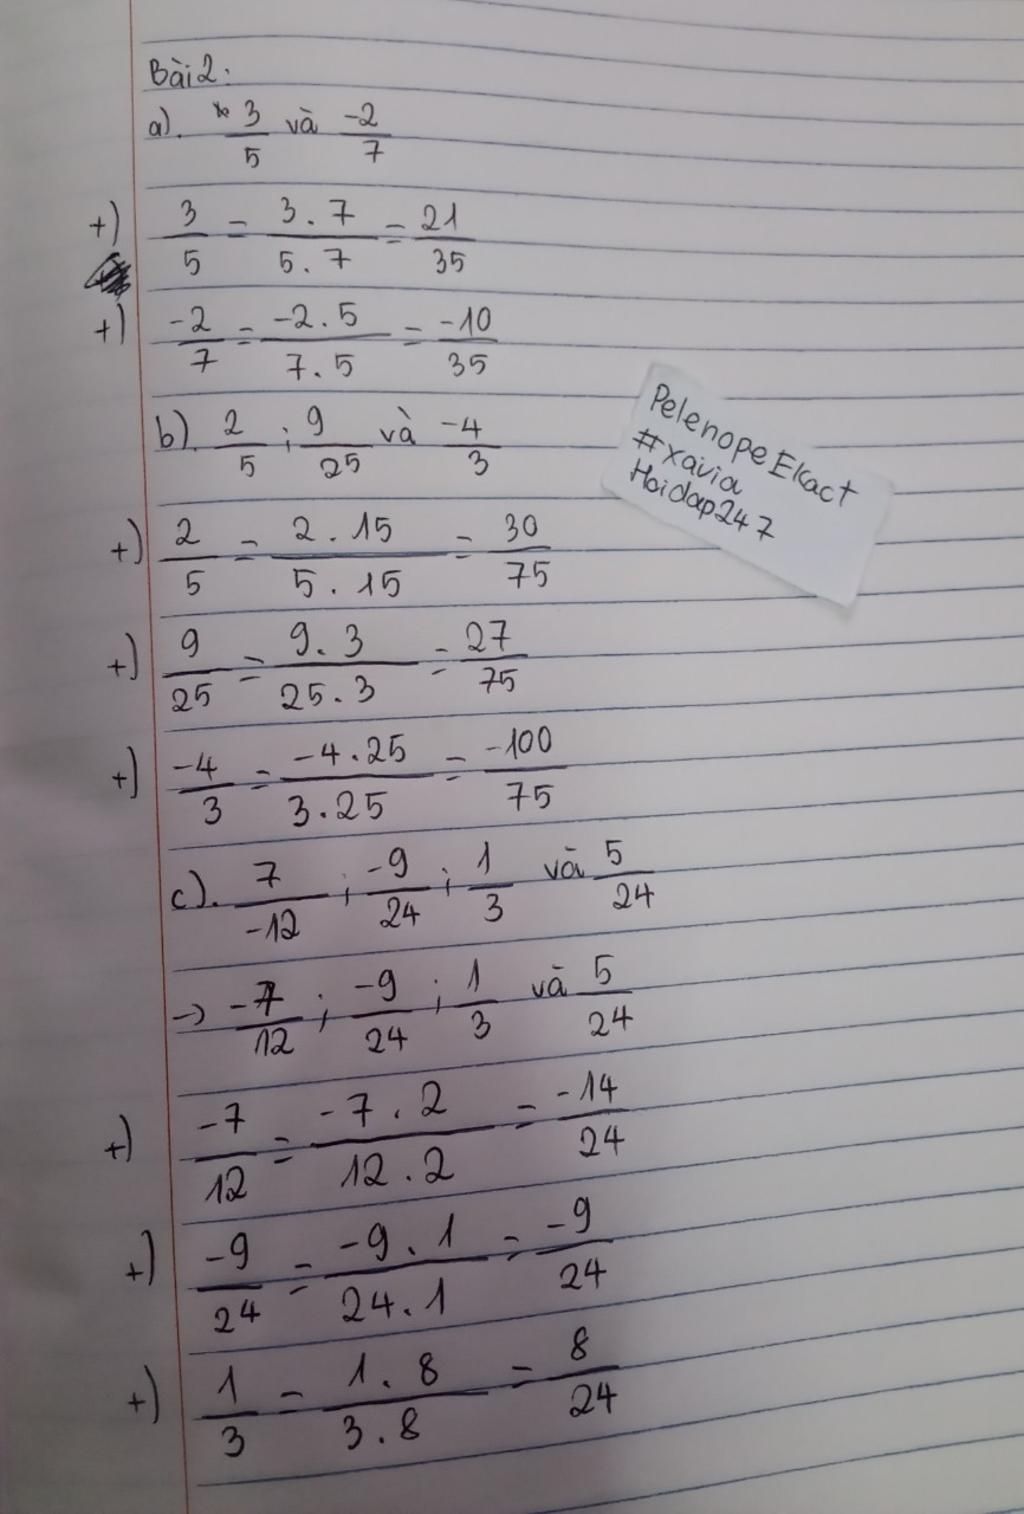 Bài 2:
a). 3/5 và -2/7
+) 3/5 = 3.7/5.7 = 21/35
+) -2/7 = -2.5/7.5 = -10/35
b). 2/5 ; 9/25 và -4/3
PelenopeEKact
#xavia
Hoidap247
+) 2/5 = 2.15/5.15 = 30/75
+) 9/25 = 9.3/25.3 = 27/75
+) -4/3 = -4.25/3.25 = -100/75
c). 7/-12 ; -9/24 ; 1/3 và 5/24
-> -7/12 ; -9/24 ; 1/3 và 5/24
+) -7/12 = -7.2/12.2 = -14/24
+) -9/24 = -9.1/24.1 = -9/24
+) 1/3 = 1.8/3.8 = 8/24